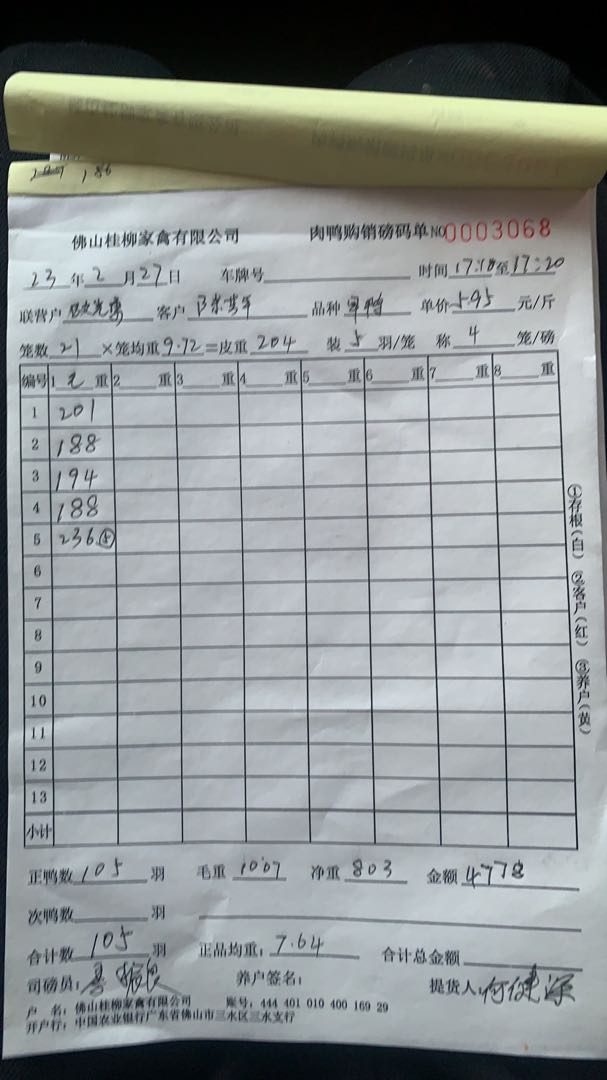 186
佛山桂柳家禽有限公司 肉鸭购销磅码单 NO 0003068
23年2月27日 车牌号 时间17:18至17:20
联营户 客户 品种 单价5.95元/斤
笼数21×笼均重9.72=皮重204 装5羽/笼 称4笼/磅
编号 1毛重 2重 3重 4重 5重 6重 7重 8重
1 201
2 188
3 194
4 188
5 236
6
7
8
9
10
11
12
13
小计
①存根(白) ②客户(红) ③养户(黄)
正鸭数105羽 毛重1007 净重803 金额4778
次鸭数 羽
合计数105羽 正品均重:7.64 合计总金额
司磅员: 养户签名: 提货人:何健深
户 名:佛山桂柳家禽有限公司 账号:444 401 010 400 169 29
开户行:中国农业银行广东省佛山市三水区三水支行